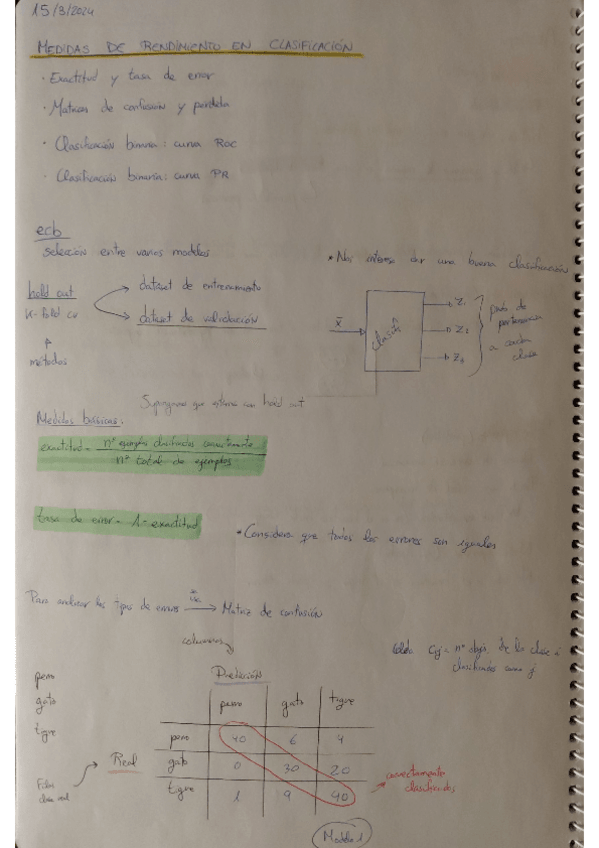 15/3/2024
MEDIDAS DE RENDIMIENTO EN CLASIFICACIÓN
· Exactitud y tasa de error
· Matrices de confusión y pérdida
· Clasificación binaria: curva ROC
· Clasificación binaria: curva PR
ecb
selección entre varios modelos
* Nos interesa dar una buena clasificación
hold out
K-fold cv
métodos
dataset de entrenamiento
dataset de validación
x
Z1
Z2
pertenencia
a cada
clase
Supongamos que estamos con hold out
Medidas básicas:
exactitud = nº ejemplos clasificados correctamente
nº total de ejemplos
tasa de error = 1 - exactitud
* Considera que todos los errores son iguales
Para analizar los tipos de errores → Matriz de confusión
columnas
Cij = nº objs. de la clase i
clasificados como j
perro
gato
tigre
Predicción
perro gato tigre
perro 40 6 4
Real
gato 0 30 20
tigre 1 9 40
Filas
clase real
correctamente
clasificados
Modelo 1